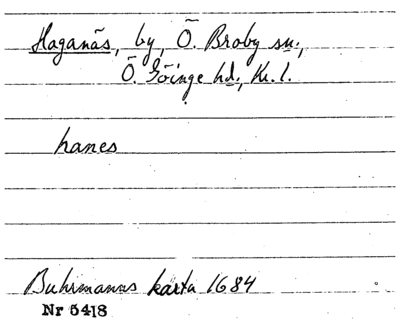 Haganäs, by, Ö. Broby sn.,
Ö. Göinge hd., Kr. l.
hanes
Buhrmanns karta 1684
Nr 5418